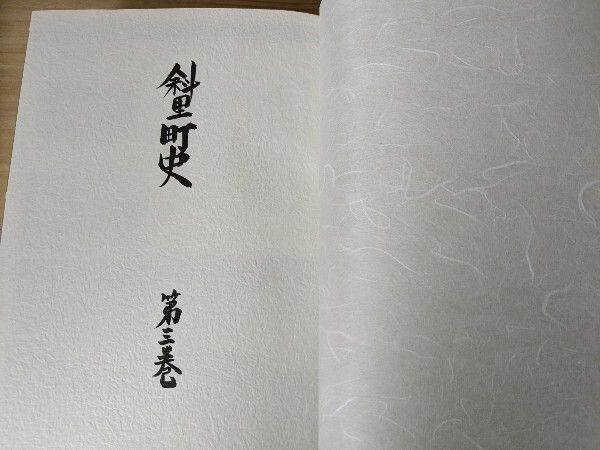 斜里町史
第三巻